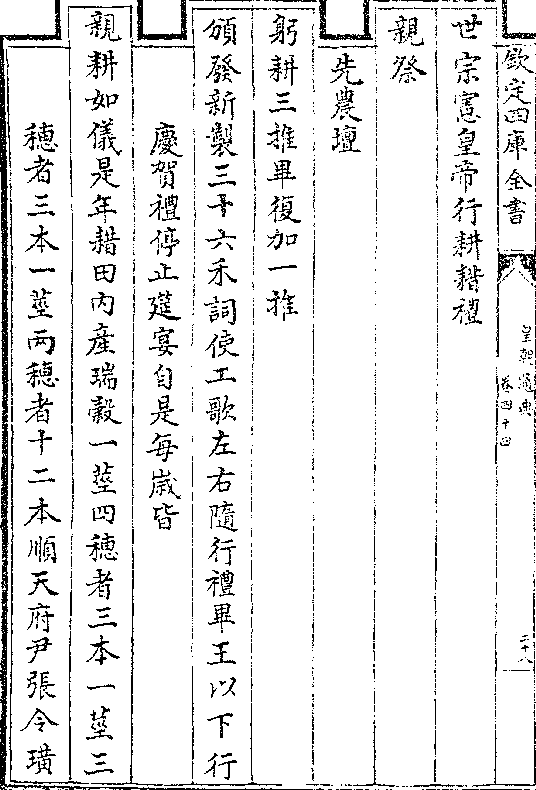 欽定四庫全書
皇朝通典
卷四十四
二十八
世宗憲皇帝行耕耤禮
親祭
先農壇
躬耕三推畢復加一推
頒發新製三十六禾詞使工歌左右隨行禮畢王以下行
慶賀禮停止筵宴自是每歲皆
親耕如儀是年耤田內產瑞穀一莖四穗者三本一莖三
穗者三本一莖兩穗者十二本順天府尹張令璜